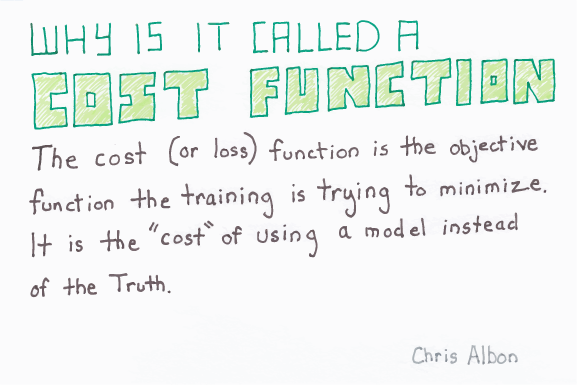 WHY IS IT CALLED A
COST FUNCTION
The cost (or loss) function is the objective
function the training is trying to minimize.
It is the "cost" of using a model instead
of the Truth.
Chris Albon